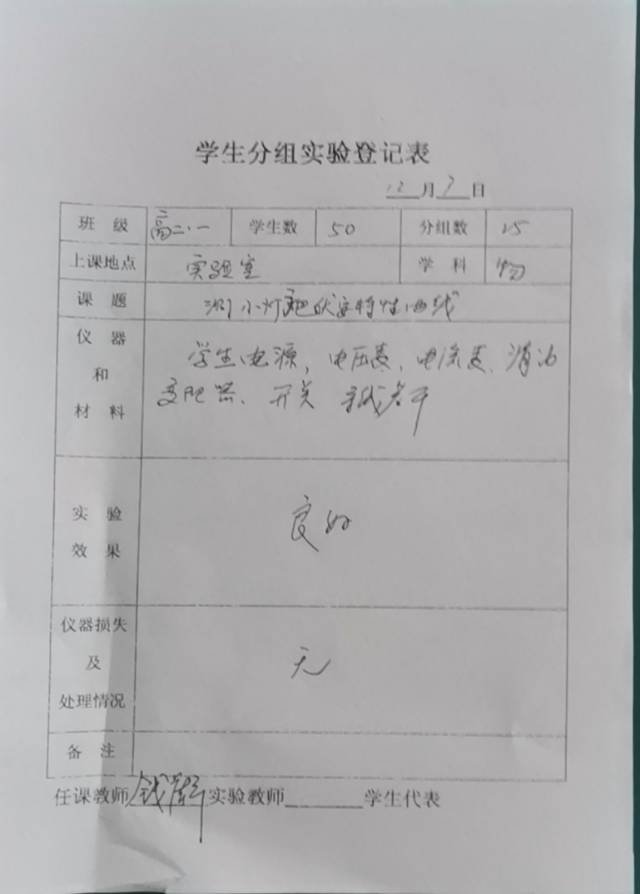 学生分组实验登记表
12月7日
班级 高二.一 学生数 50 分组数 25
上课地点 实验室 学科 物
课题 测小灯泡伏安特性曲线
仪器和材料 学生电源, 电压表, 电流表, 滑动
变阻器、开关 若干
实验效果 良好
仪器损失及处理情况 无
备注
任课教师 钱 实验教师 学生代表